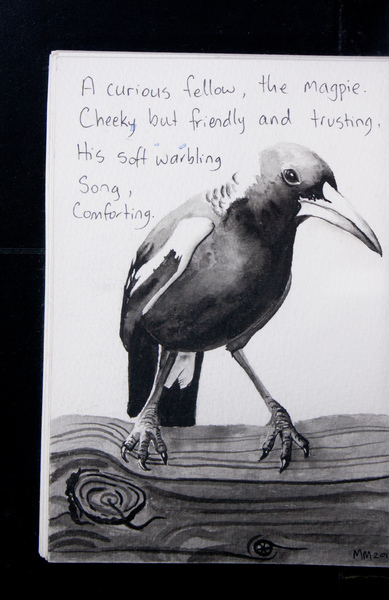 A curious fellow, the magpie.
Cheeky but friendly and trusting.
His soft warbling
Song,
Comforting.